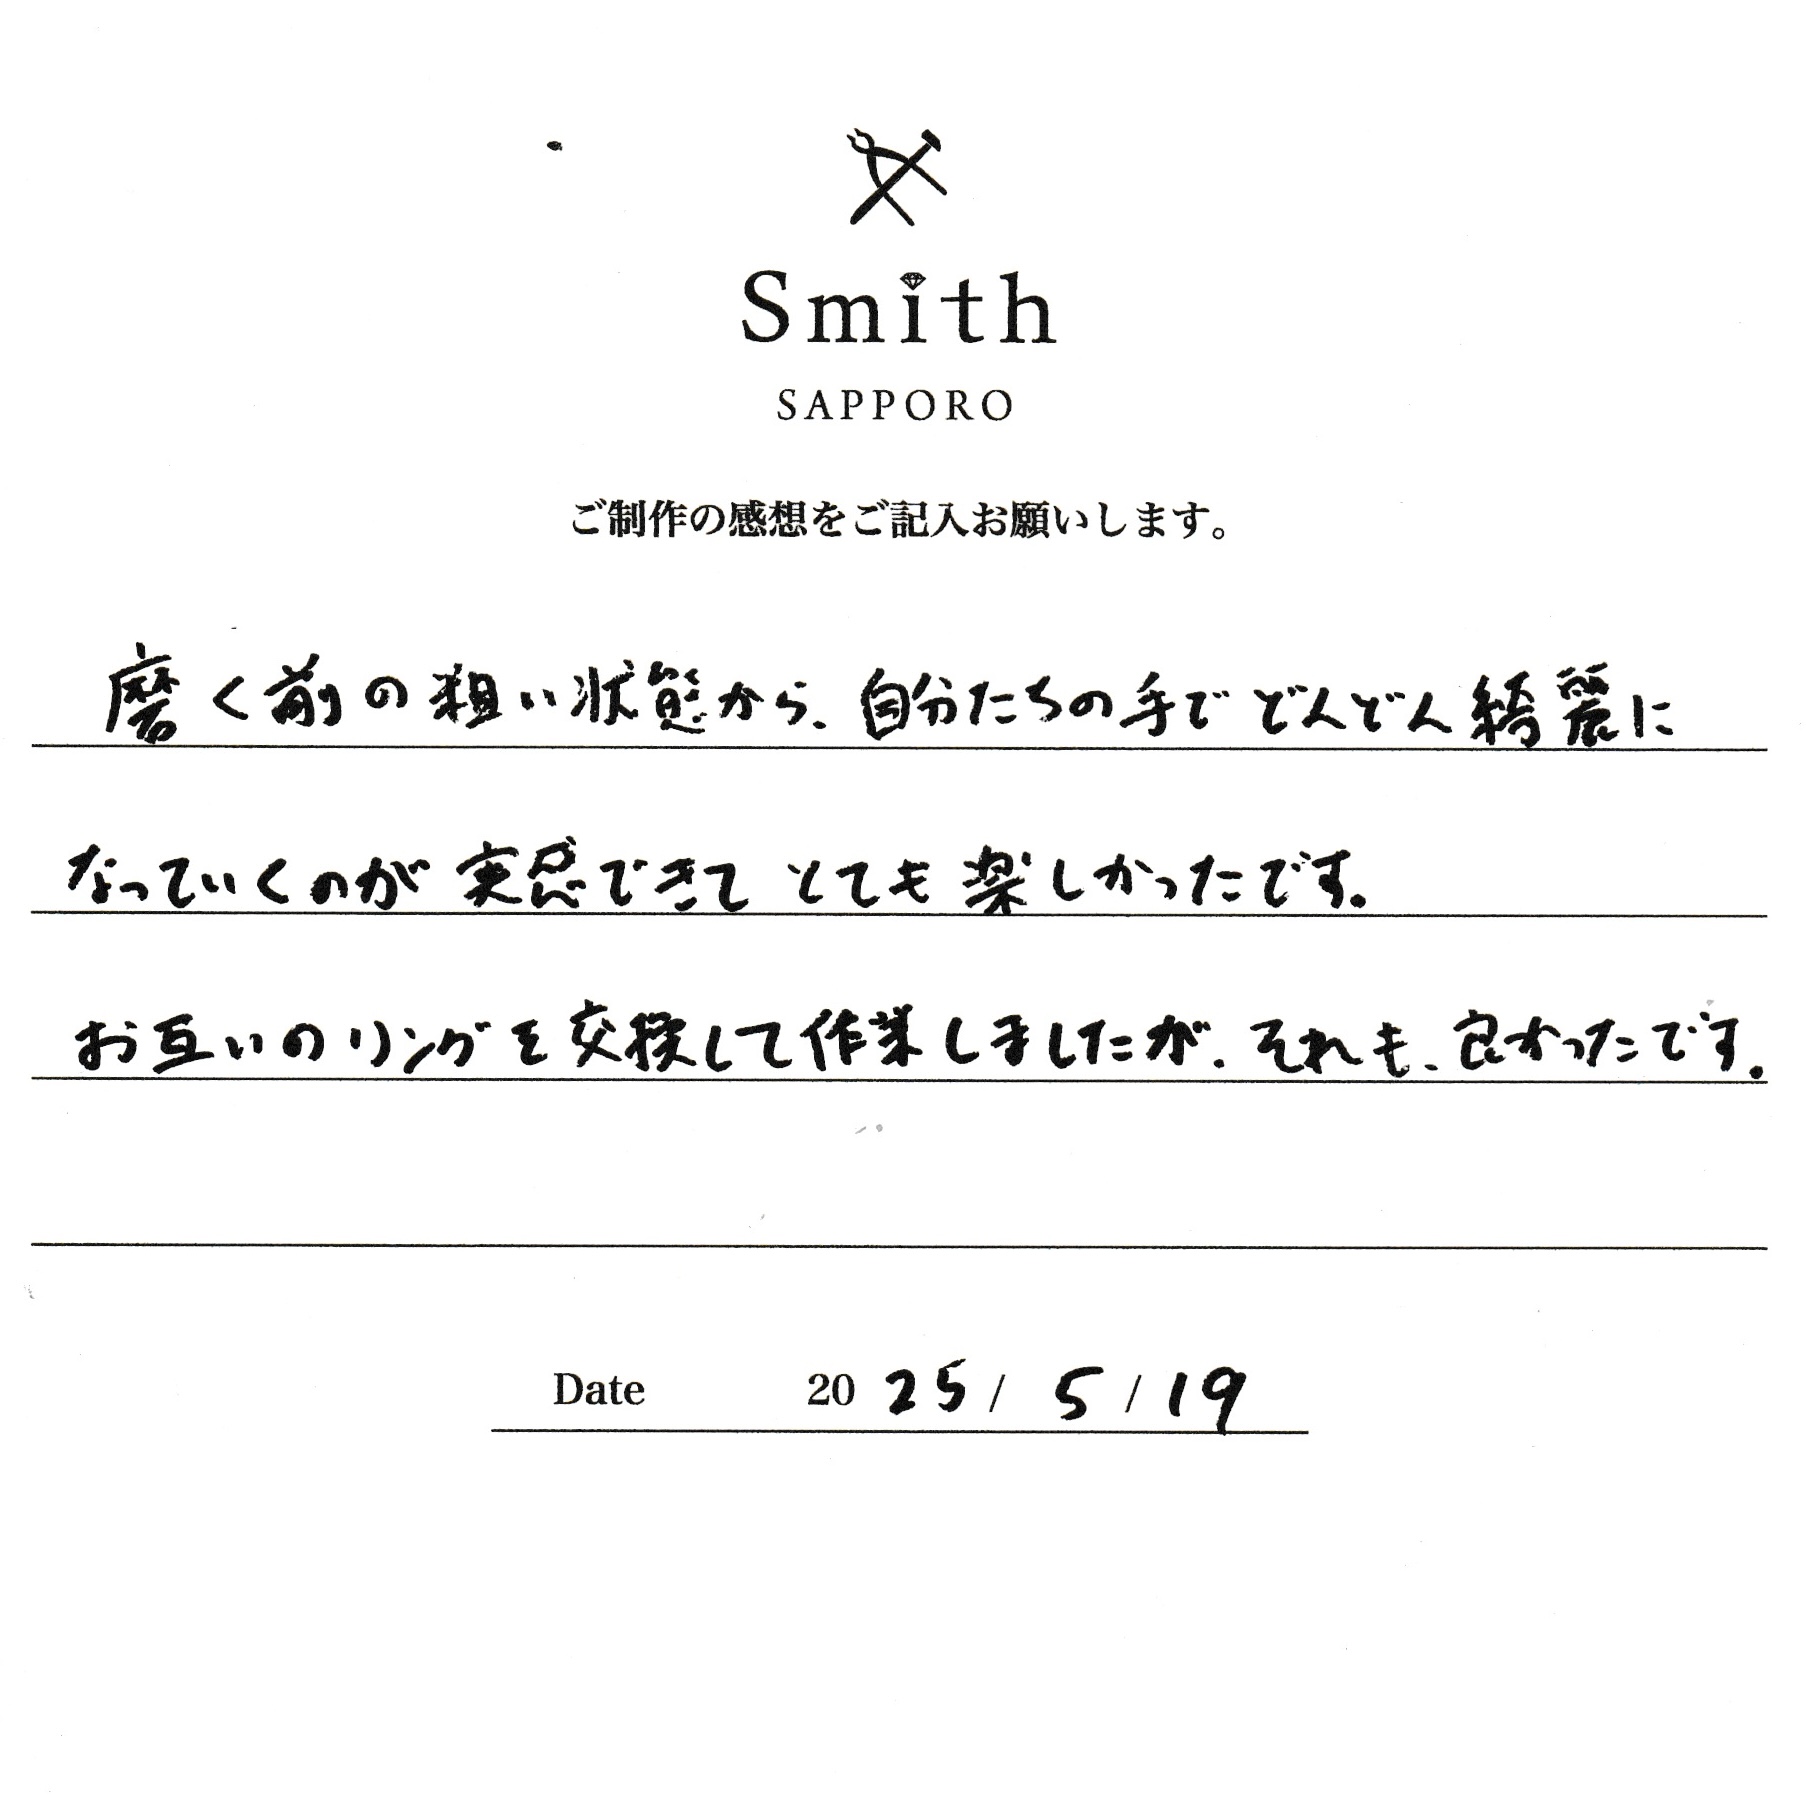 Smith
SAPPORO
ご制作の感想をご記入お願いします。
磨く前の粗い状態から、自分たちの手でどんどん綺麗に
なっていくのが実感できてとても楽しかったです。
お互いのリングを交換して作業しましたが、それも、良かったです。
Date 2025/5/19